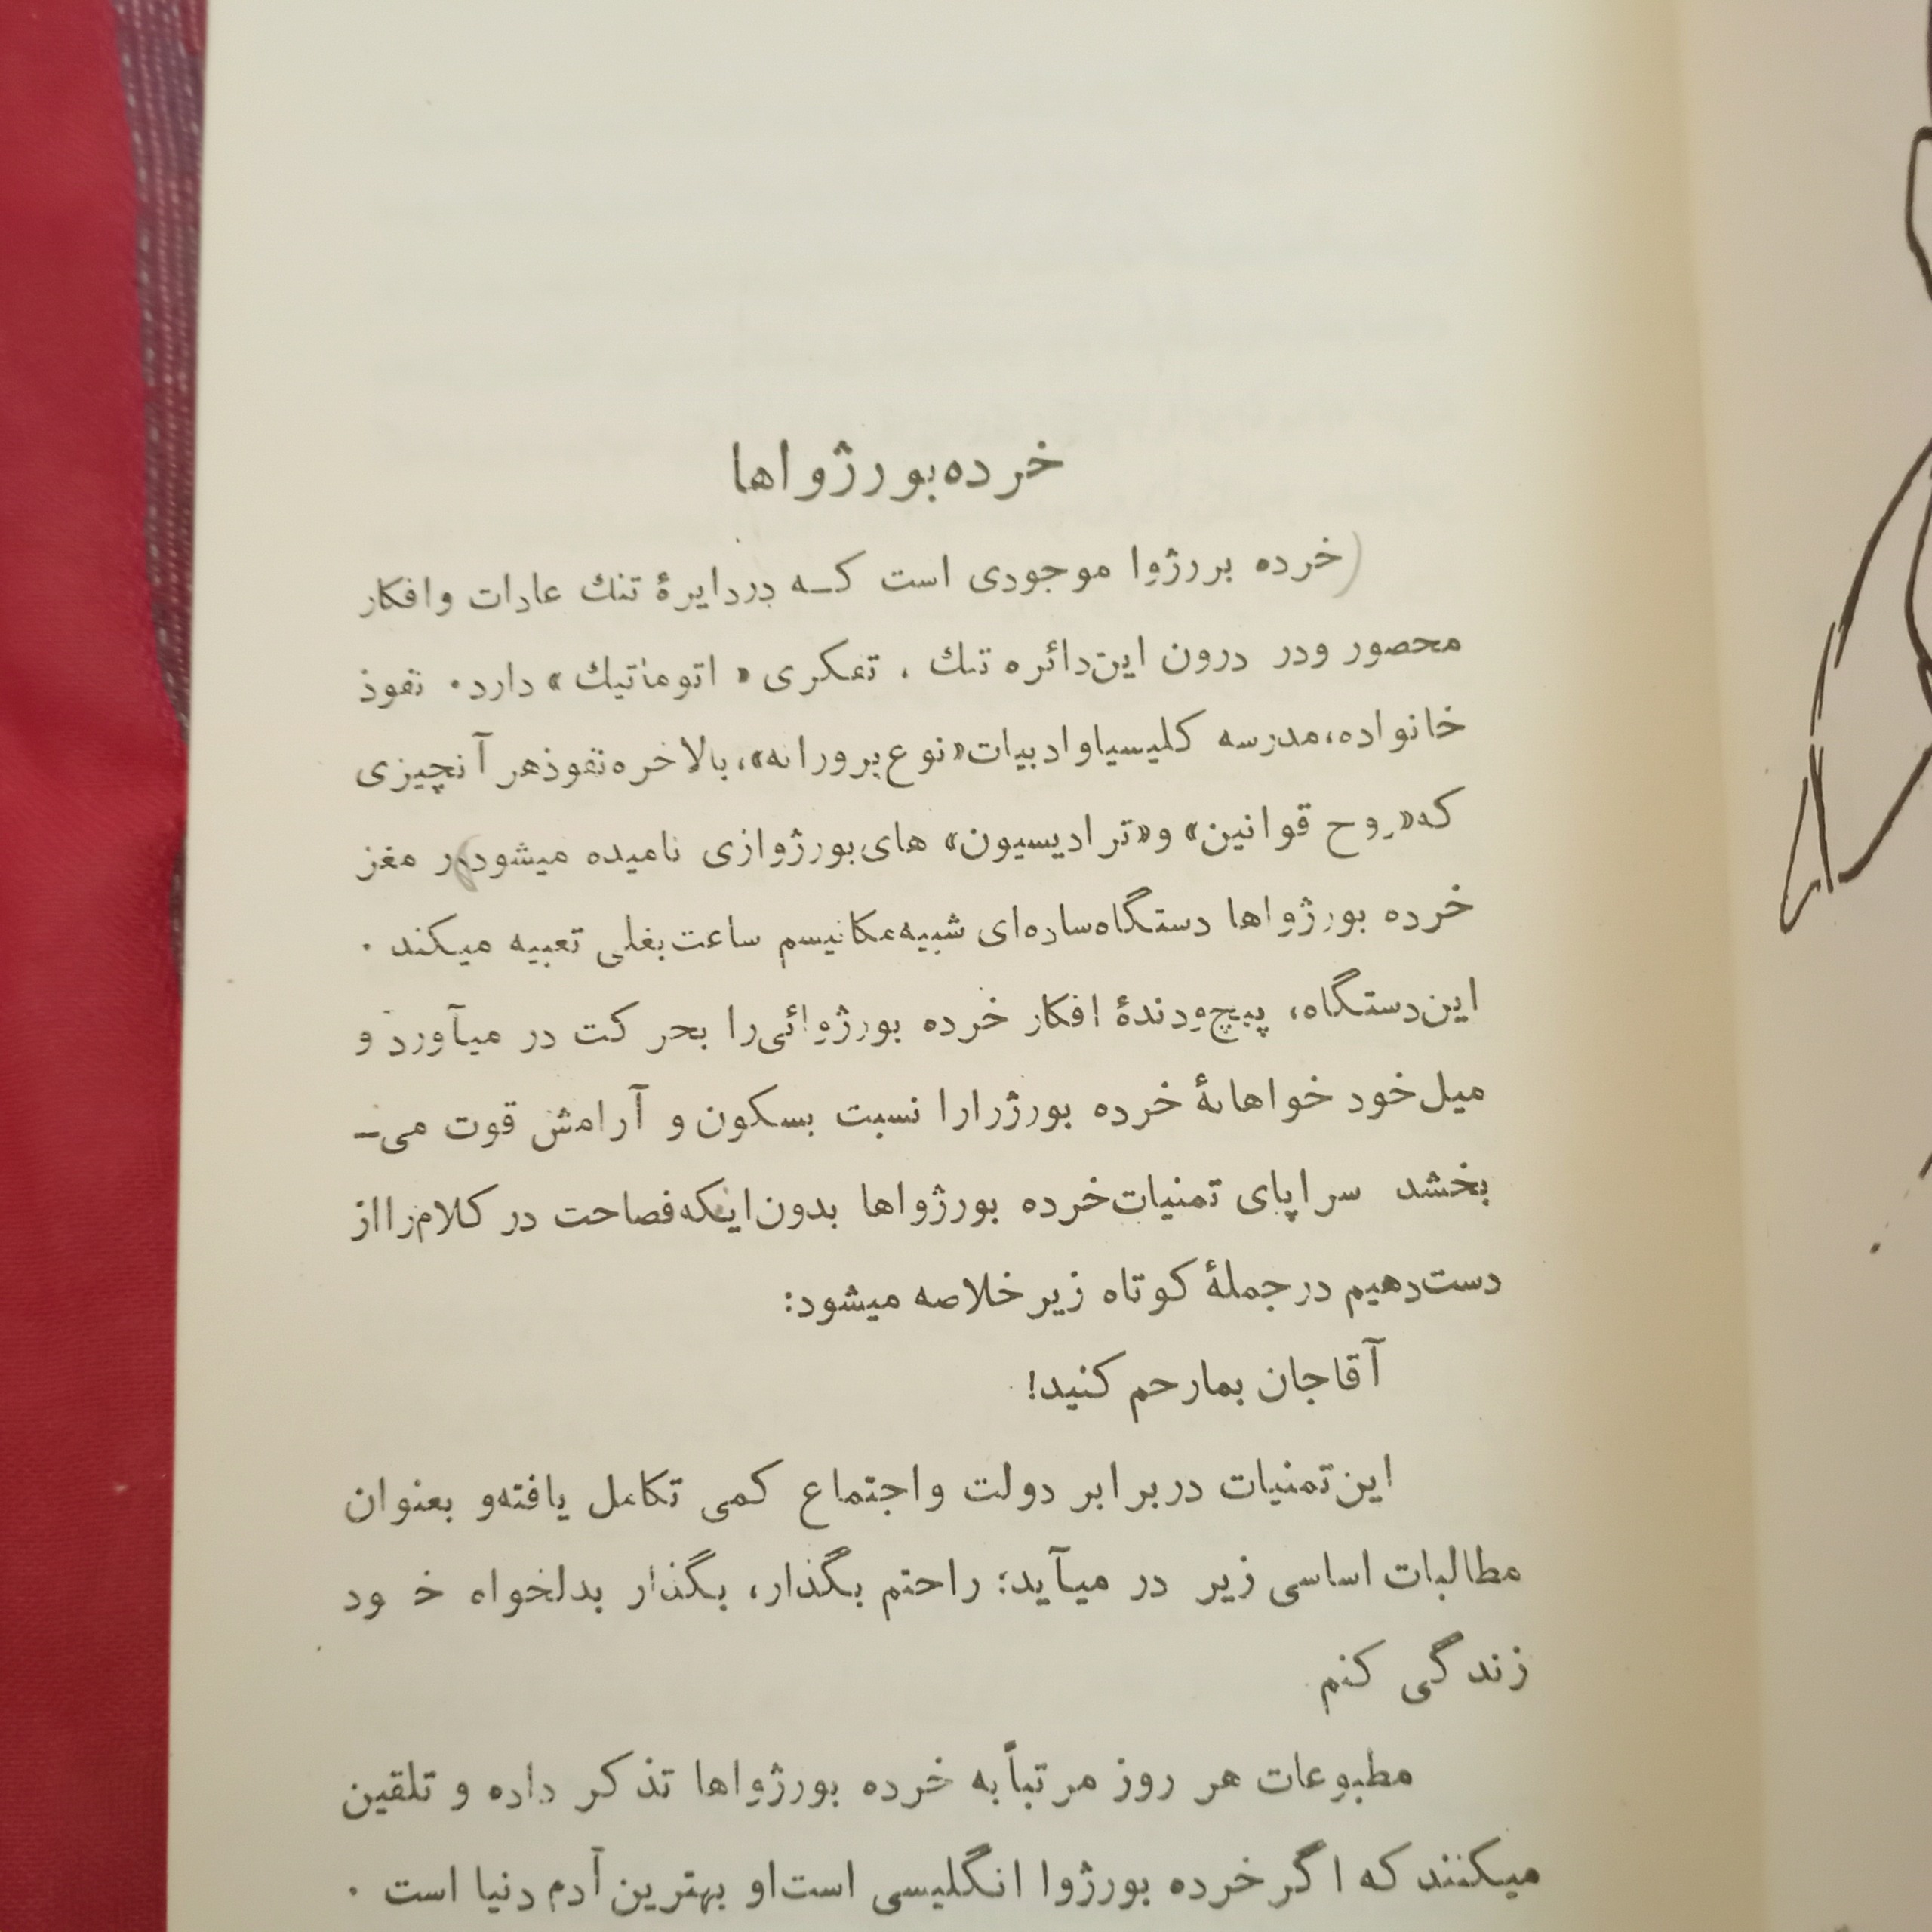 خرده‌بورژواها
(خرده بررژوا موجودی است کـه دردایرهٔ تنك عادات وافکار
محصور ودر درون این‌دائره تنك ، تفکری « اتوماتیك » دارد. نفوذ
خانواده،مدرسه کلیسیاوادبیات«نوع‌پرورانه»، بالاخره‌نفوذهر آنچیزی
که«روح قوانین» و«ترادیسیون» های‌بورژوازی نامیده میشوددر مغز
خرده بورژواها دستگاه‌ساده‌ای شبیه‌مکانیسم ساعت‌بغلی تعبیه میکند .
این‌دستگاه، پیچ‌ودندهٔ افکار خرده بورژوائی‌را بحرکت در میآورد و
میل‌خود خواهانهٔ خرده بورژرارا نسبت بسکون‌و آرامش قوت می-
بخشد سراپای تمنیات‌خرده بورژواها بدون‌اینکه‌فصاحت در کلام‌رااز
دست‌دهیم درجملهٔ کوتاه زیرخلاصه میشود:
آقاجان بمارحم کنید!
این‌تمنیات دربرابر دولت واجتماع کمی تکامل یافته‌و بعنوان
مطالبات اساسی زیر در میآید: راحتم بگذار، بگذار بدلخواه خود
زندگی کنم
مطبوعات هر روز مرتباً به خرده بورژواها تذکر داده و تلقین
میکنند که اگر خرده بورژوا انگلیسی است‌او بهترین‌آدم دنیا است .